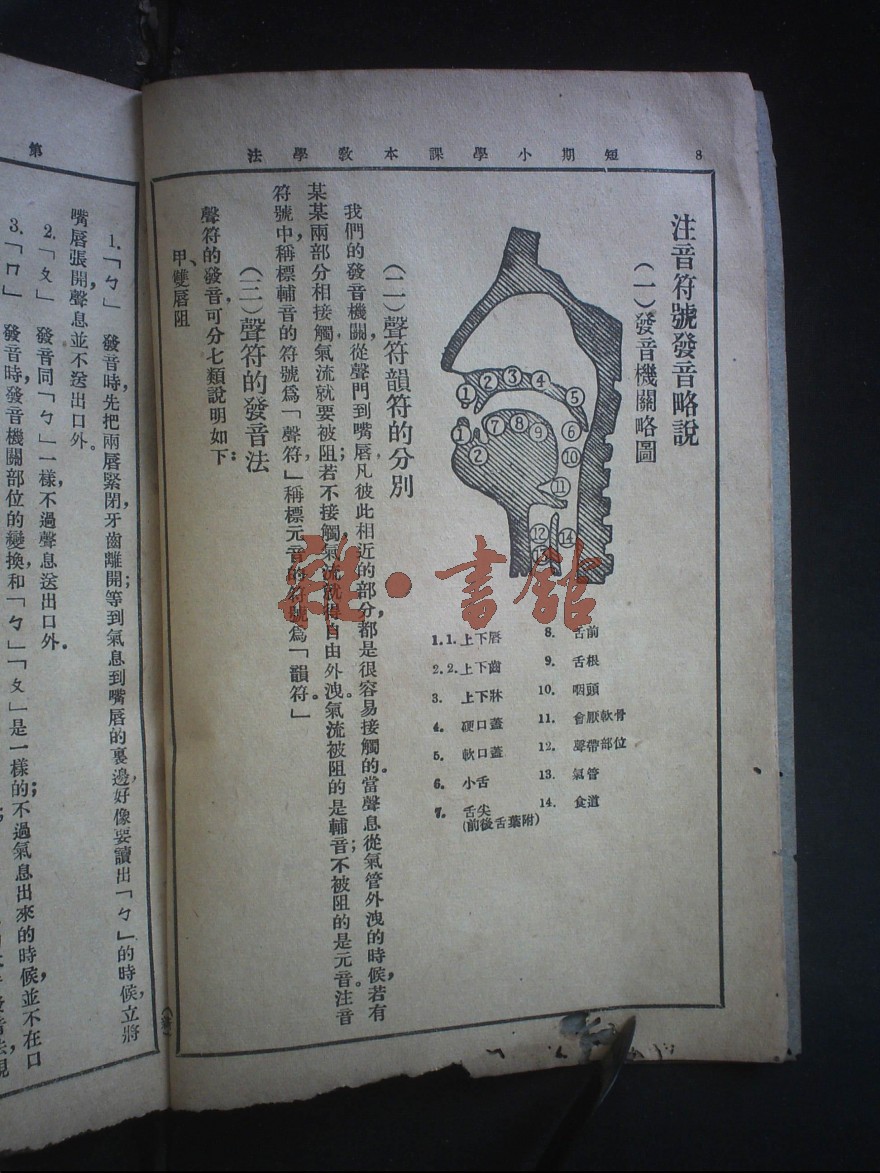 8
短期小學課本教學法
注音符號發音略說
(一)發音機關略圖
1.1. 上下唇
2.2. 上下齒
3. 上下牀
4. 硬口蓋
5. 軟口蓋
6. 小舌
7. 舌尖
(前後舌葉附)
8. 舌前
9. 舌根
10. 咽頭
11. 會厭軟骨
12. 聲帶部位
13. 氣管
14. 食道
(二)聲符韻符的分別
我們的發音機關,從聲門到嘴唇凡彼此相近的部分,都是很容易接觸的。當聲息從氣管外洩的時候,若有
某某兩部分相接觸,氣流就要被阻;若不接觸,氣流就得自由外洩。氣流被阻的是輔音;不被阻的是元音。注音
符號中,稱標輔音的符號爲「聲符」稱標元音的符號爲「韻符」。
(三)聲符的發音法
聲符的發音,可分七類說明如下:
甲、雙唇阻
第
1.「ㄅ」 發音時先把兩唇緊閉牙齒離開;等到氣息到嘴唇的裏邊,好像要讀出「ㄅ」的時候,立將
嘴唇張開,聲息並不送出口外。
2.「ㄆ」 發音同「ㄅ」一樣,不過聲息送出口外。
3.「ㄇ」 發音時,發音機關部位的變換和「ㄅ」「ㄆ」是一樣的;不過氣息出來的時候,並不在口
雜·書館